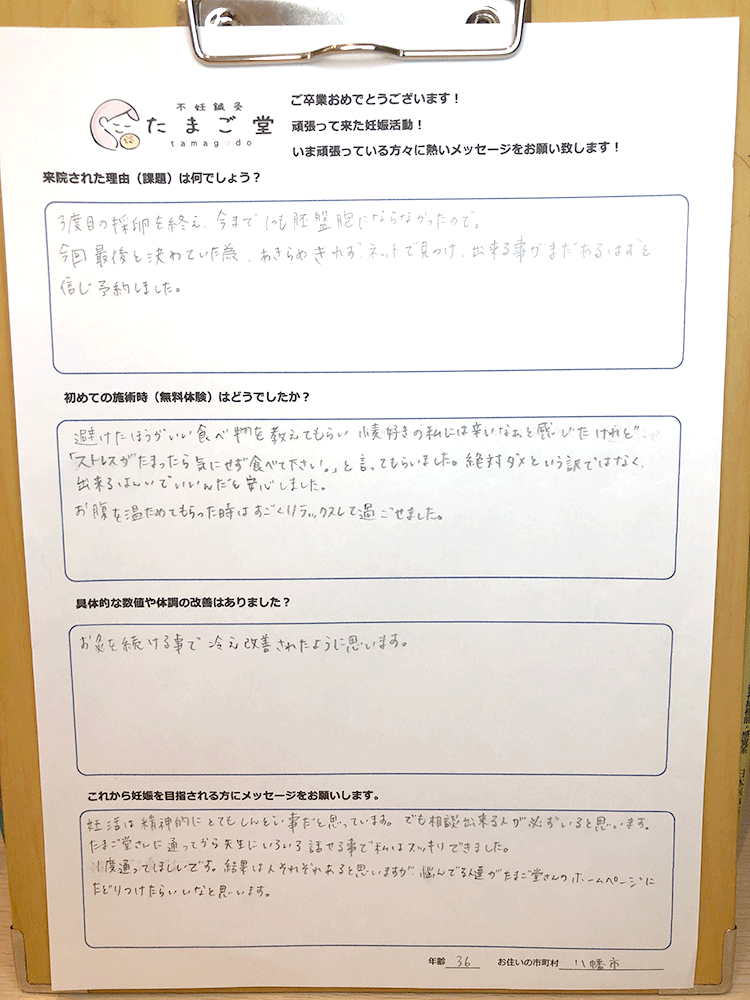 不妊鍼灸
たまご堂
tamagodo
ご卒業おめでとうございます！
頑張って来た妊娠活動！
いま頑張っている方々に熱いメッセージをお願い致します！
来院された理由（課題）は何でしょう？
3度目の採卵を終え、今まで1つも胚盤胞にならなかったので。
今回最後と決めていた為、あきらめきれず、ネットで見つけ、出来る事がまだあるはずと
信じ予約しました。
初めての施術時（無料体験）はどうでしたか？
避けたほうがいい食べ物を教えてもらい 小麦好きの私には辛いなぁと感じたけれど
「ストレスがたまったら気にせず食べて下さい。」と言ってもらいました。絶対ダメという訳ではなく、
出来るはんいでいいんだと安心しました。
お腹を温ためてもらった時はすごくリラックスして過ごせました。
具体的な数値や体調の改善はありました？
お灸を続ける事で 冷え改善されたように思います。
これから妊娠を目指される方にメッセージをお願いします。
妊活は精神的にとてもしんどい事だと思っています。でも相談出来る人が必ずいると思います。
たまご堂さんに通ってから先生にいろいろ話せる事で私はスッキリできました。
1度通ってほしいです。結果は人それぞれあると思いますが、悩んでる人達がたまご堂さんのホームページに
たどりつけたらいいなと思います。
年齢 36 お住いの市町村 八幡市